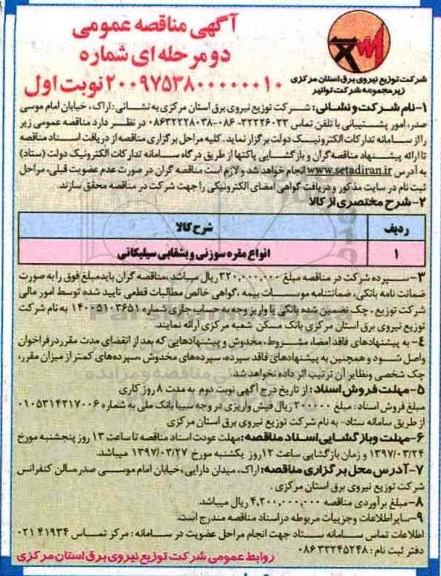 آگهی مناقصه عمومی
دو مرحله ای شماره
۲۰۰۹۷۵۳۸۰۰۰۰۰۰۱۰ نوبت اول
شرکت توزیع نیروی برق استان مرکزی
زیرمجموعه شرکت توانیر
۱-نام شرکت و نشانی: شرکت توزیع نیروی برق استان مرکزی به نشانی: اراک، خیابان امام موسی
صدر، امور پشتیبانی با تلفن تماس ۳۲۲۲۶۰۳۳-۰۸۶ ۰۸۶۳۲۲۲۸۰۳۸ در نظر دارد مناقصه عمومی زیر
را از سامانه تدارکات الکترونیک دولت برگزار نماید. کلیه مراحل برگزاری مناقصه از دریافت اسناد مناقصه
تا ارائه پیشنهاد مناقصه گران و بازگشایی پاکتها از طریق درگاه سامانه تدارکات الکترونیک دولت (ستاد)
به آدرس www.setadiran.ir انجام خواهد شد و لازم است مناقصه گران در صورت عدم عضویت قبلی، مراحل
ثبت نام در سایت مذکور و دریافت گواهی امضای الکترونیکی را جهت شرکت در مناقصه محقق سازند.
۲-شرح مختصری از کالا
ردیف شرح کالا
۱ انواع مقره سوزنی و بشقابی سیلیکانی
۳-سپرده شرکت در مناقصه مبلغ ۳۲۰,۰۰۰,۰۰۰ ریال میباشد. مناقصه گران باید مبلغ فوق را به صورت
ضمانت نامه بانکی، ضمانتنامه موسسات بیمه، گواهی خالص مطالبات قطعی تایید شده توسط امور مالی
شرکت توزیع، چک تضمین شده بانکی یا واریز وجه به حساب جاری شماره ۱۴۰۰۵۱۰۳۶۵۱ به نام شرکت
توزیع نیروی برق استان مرکزی بانک مسکن شعبه مرکزی ارائه نمایند.
۴- به پیشنهادهای فاقد امضا، مشروط، مخدوش و پیشنهادهایی که بعد از انقضای مدت مقرر در فراخوان
واصل شود و همچنین به پیشنهادهای فاقد سپرده، سپرده‌های مخدوش، سپرده‌های کمتر از میزان مقرر،
چک شخصی و نظایر آن ترتیب اثر داده نخواهد شد.
۵-مهلت فروش اسناد: از تاریخ درج آگهی نوبت دوم به مدت ۸ روز کاری
مبلغ فروش اسناد: مبلغ ۳۰۰۰۰۰ ریال فیش واریزی در وجه سیبا بانک ملی به شماره ۰۱۰۵۳۱۴۲۱۷۰۰۶
از طریق سامانه ستاد- به نام شرکت توزیع نیروی برق استان مرکزی
۶-مهلت و بازگشایی اسناد مناقصه: مهلت عودت اسناد مناقصه تا ساعت ۱۳ روز پنجشنبه مورخ
۱۳۹۷/۰۳/۲۴ و زمان بازگشایی ساعت ۱۲ روز یکشنبه مورخ ۱۳۹۷/۰۳/۲۷ میباشد.
۷-آدرس محل برگزاری مناقصه: اراک، میدان دارایی، خیابان امام موسی صدر سالن کنفرانس
شرکت توزیع نیروی برق استان مرکزی.
۸-مبلغ برآوردی مناقصه ۴,۲۰۰,۰۰۰,۰۰۰ ریال میباشد.
۹-سایر اطلاعات و جزییات مربوطه در اسناد مناقصه مندرج است.
اطلاعات تماس سامانه ستاد جهت انجام مراحل عضویت در سامانه: مرکز تماس ۴۱۹۳۴ ۰۲۱
دفتر ثبت نام: ۳۳۲۴۵۲۴۸ ۰۸۶
روابط عمومی شرکت توزیع نیروی برق استان مرکزی